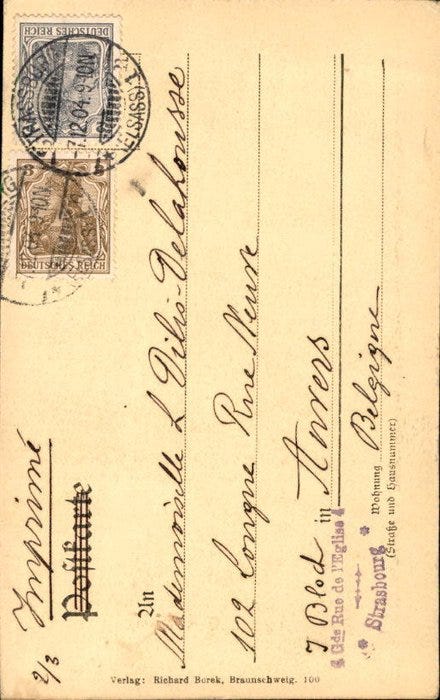 DEUTSCHES REICH
STRASSBURG
7.12.04.9-10N.
(ELSASS) 1
3
DEUTSCHES REICH
2/3
Imprimé
Postkarte
An
Mademoiselle L Dilis-Delahousse
102 Longue Rue Neuve
in Anvers
J Blod
4 Gde Rue de l'Eglise 4
* Strasbourg *
Wohnung Belgique
(Straße und Hausnummer)
Verlag: Richard Borek, Braunschweig. 100